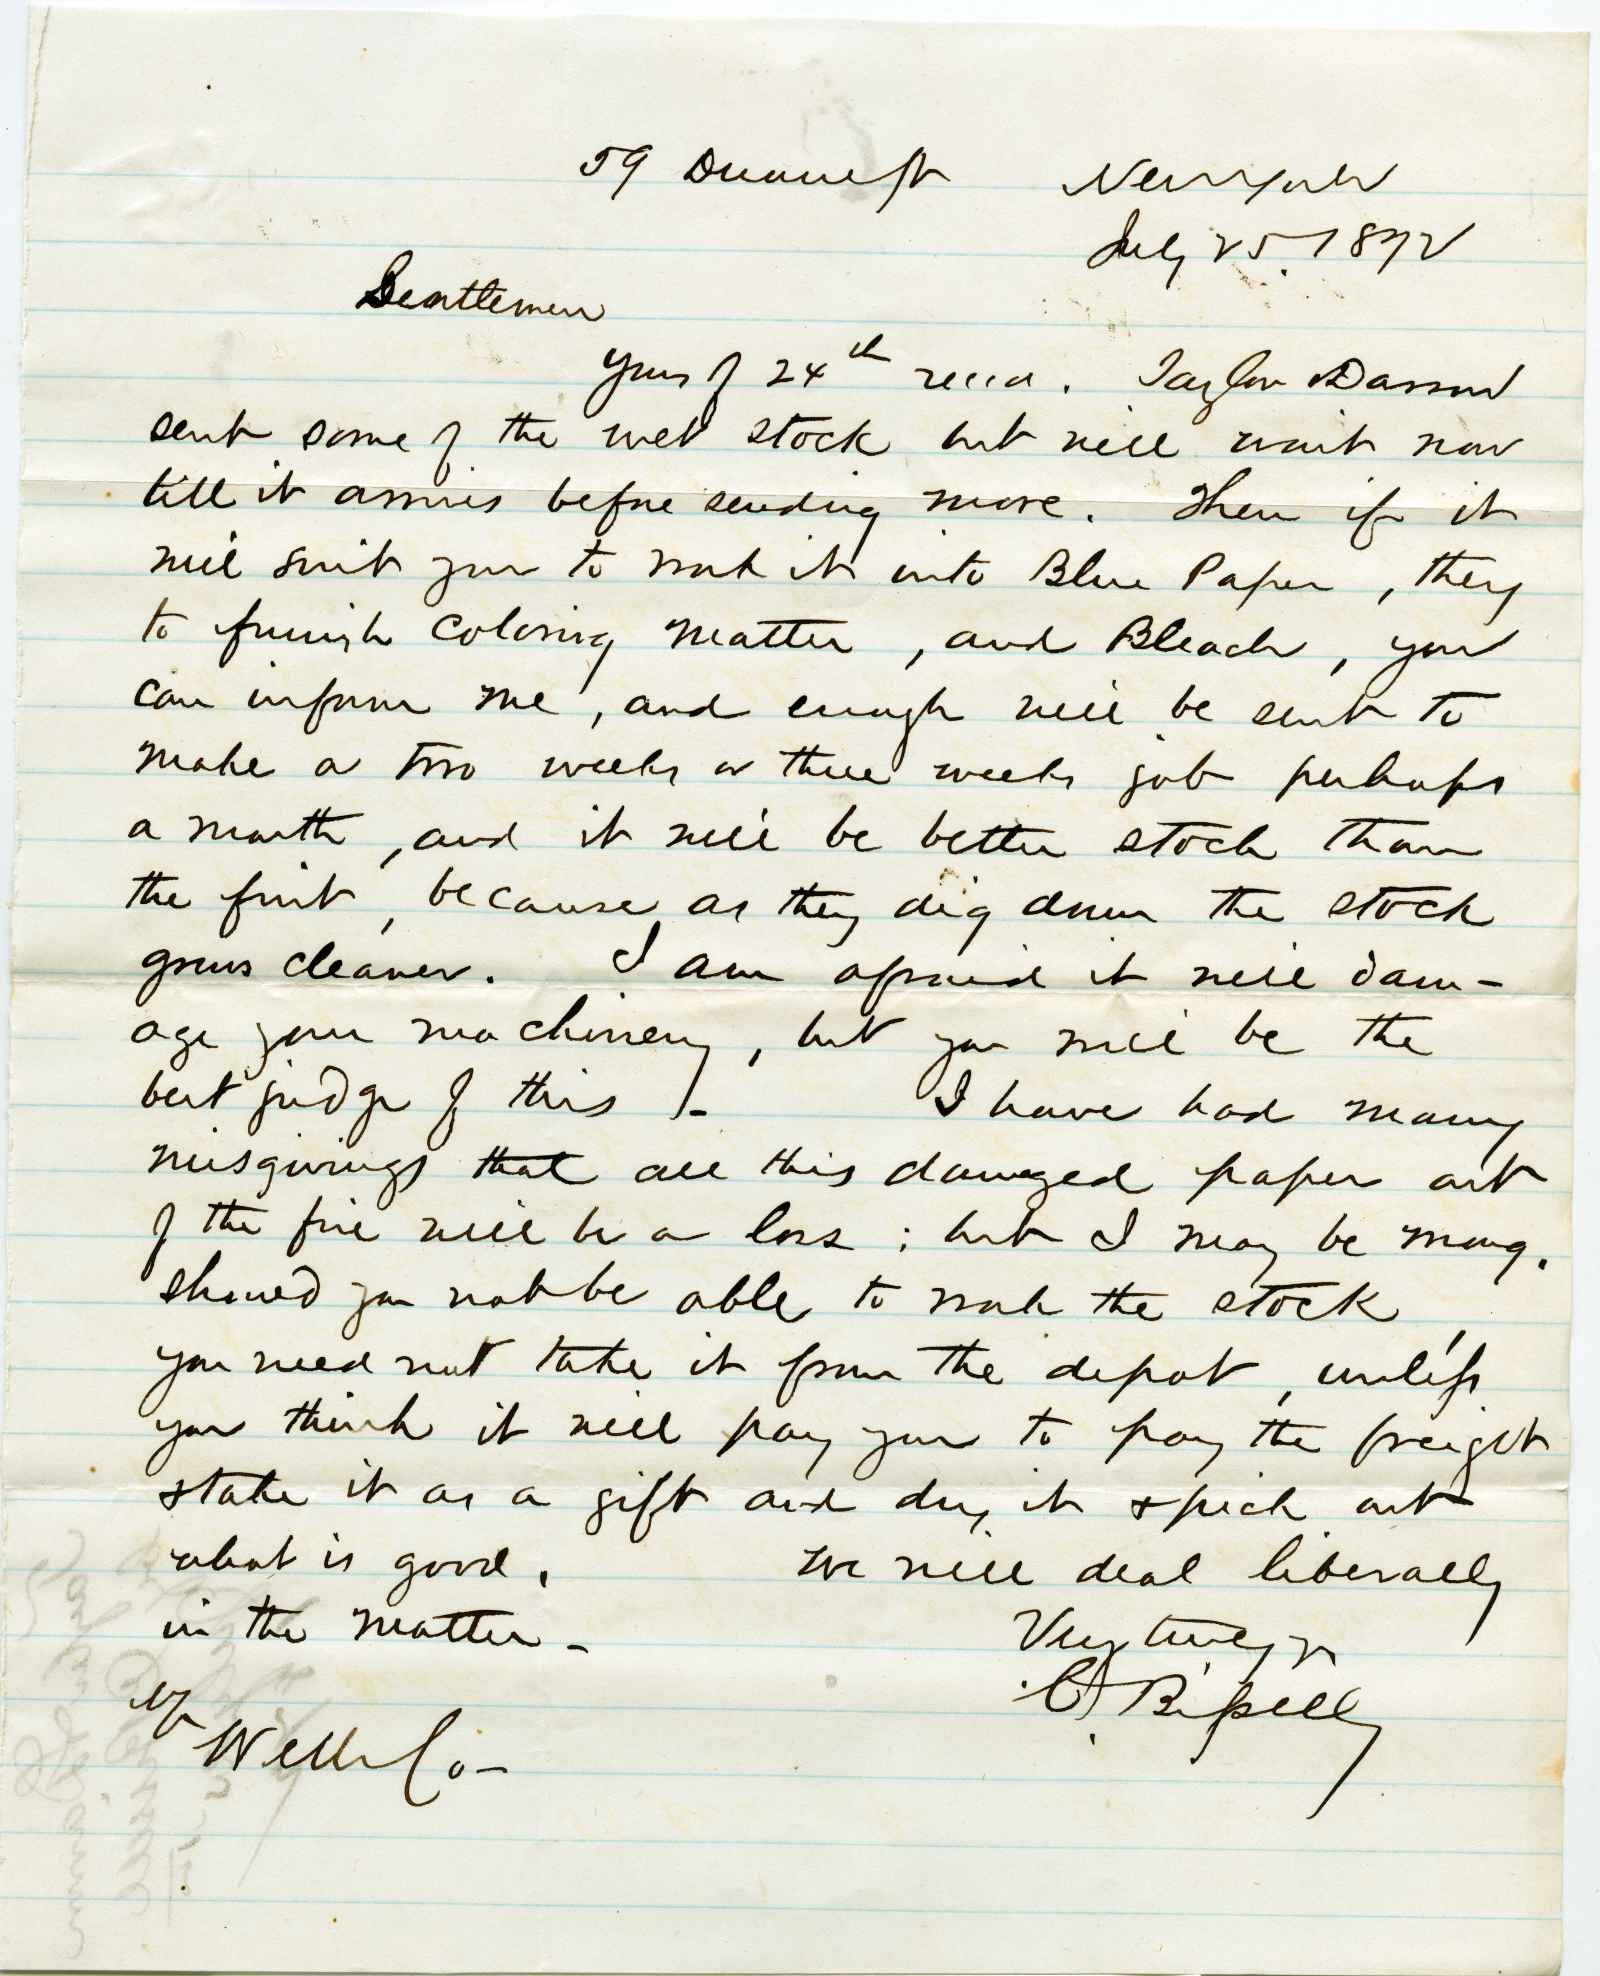 59 Duane st New York
July 25. 1872
Gentlemen
Yours of 24th recd. Taylor
sent some of the wet stock but will wait now
till it arrives before sending more. Then if it
will suit you to work it into Blue Paper, they
to furnish coloring matter, and Bleach, you
can inform me, and enough will be sent to
make a two weeks or three weeks job perhaps
a month, and it will be better stock than
the first, because as they dig down the stock
grows cleaner. I am afraid it will dam-
age your machinery, but you will be the
best judge of this - I have had many
misgivings that all this damaged paper out
of the fire will be a loss; but I may be wrong.
should you not be able to work the stock,
you need not take it from the depot, unless
you think it will pay you to pay the freight
& take it as a gift and dry it & pick out
what is good. We will deal liberally
in the matter -
Very truly yr
C. Bissell
Wells Co -